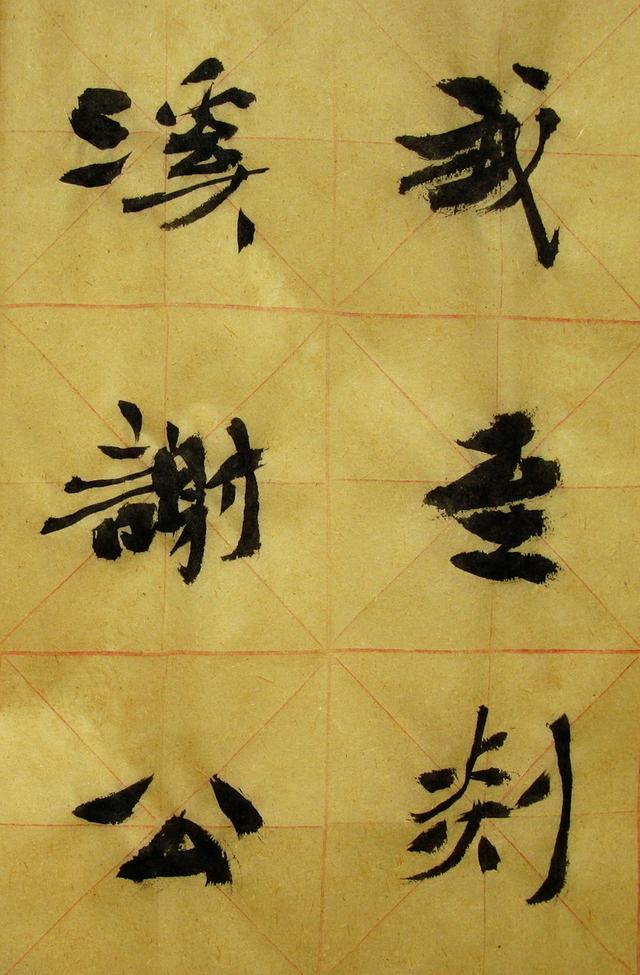 我至剡
溪謝公